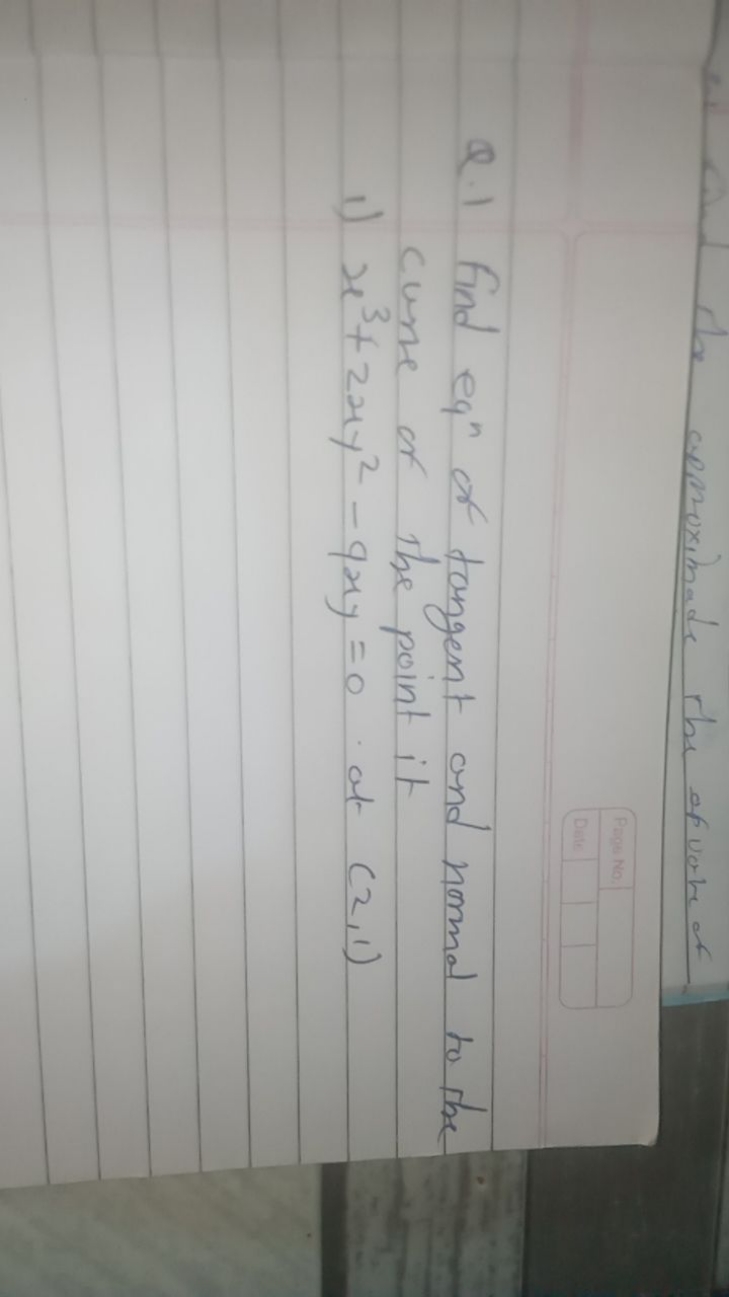 the approximade the of vale of
Page No.
Date
Q.1 find eqⁿ of tangent and normal to the
curve of the point it
1) x³+2xy²-9xy=0 . at (2,1)